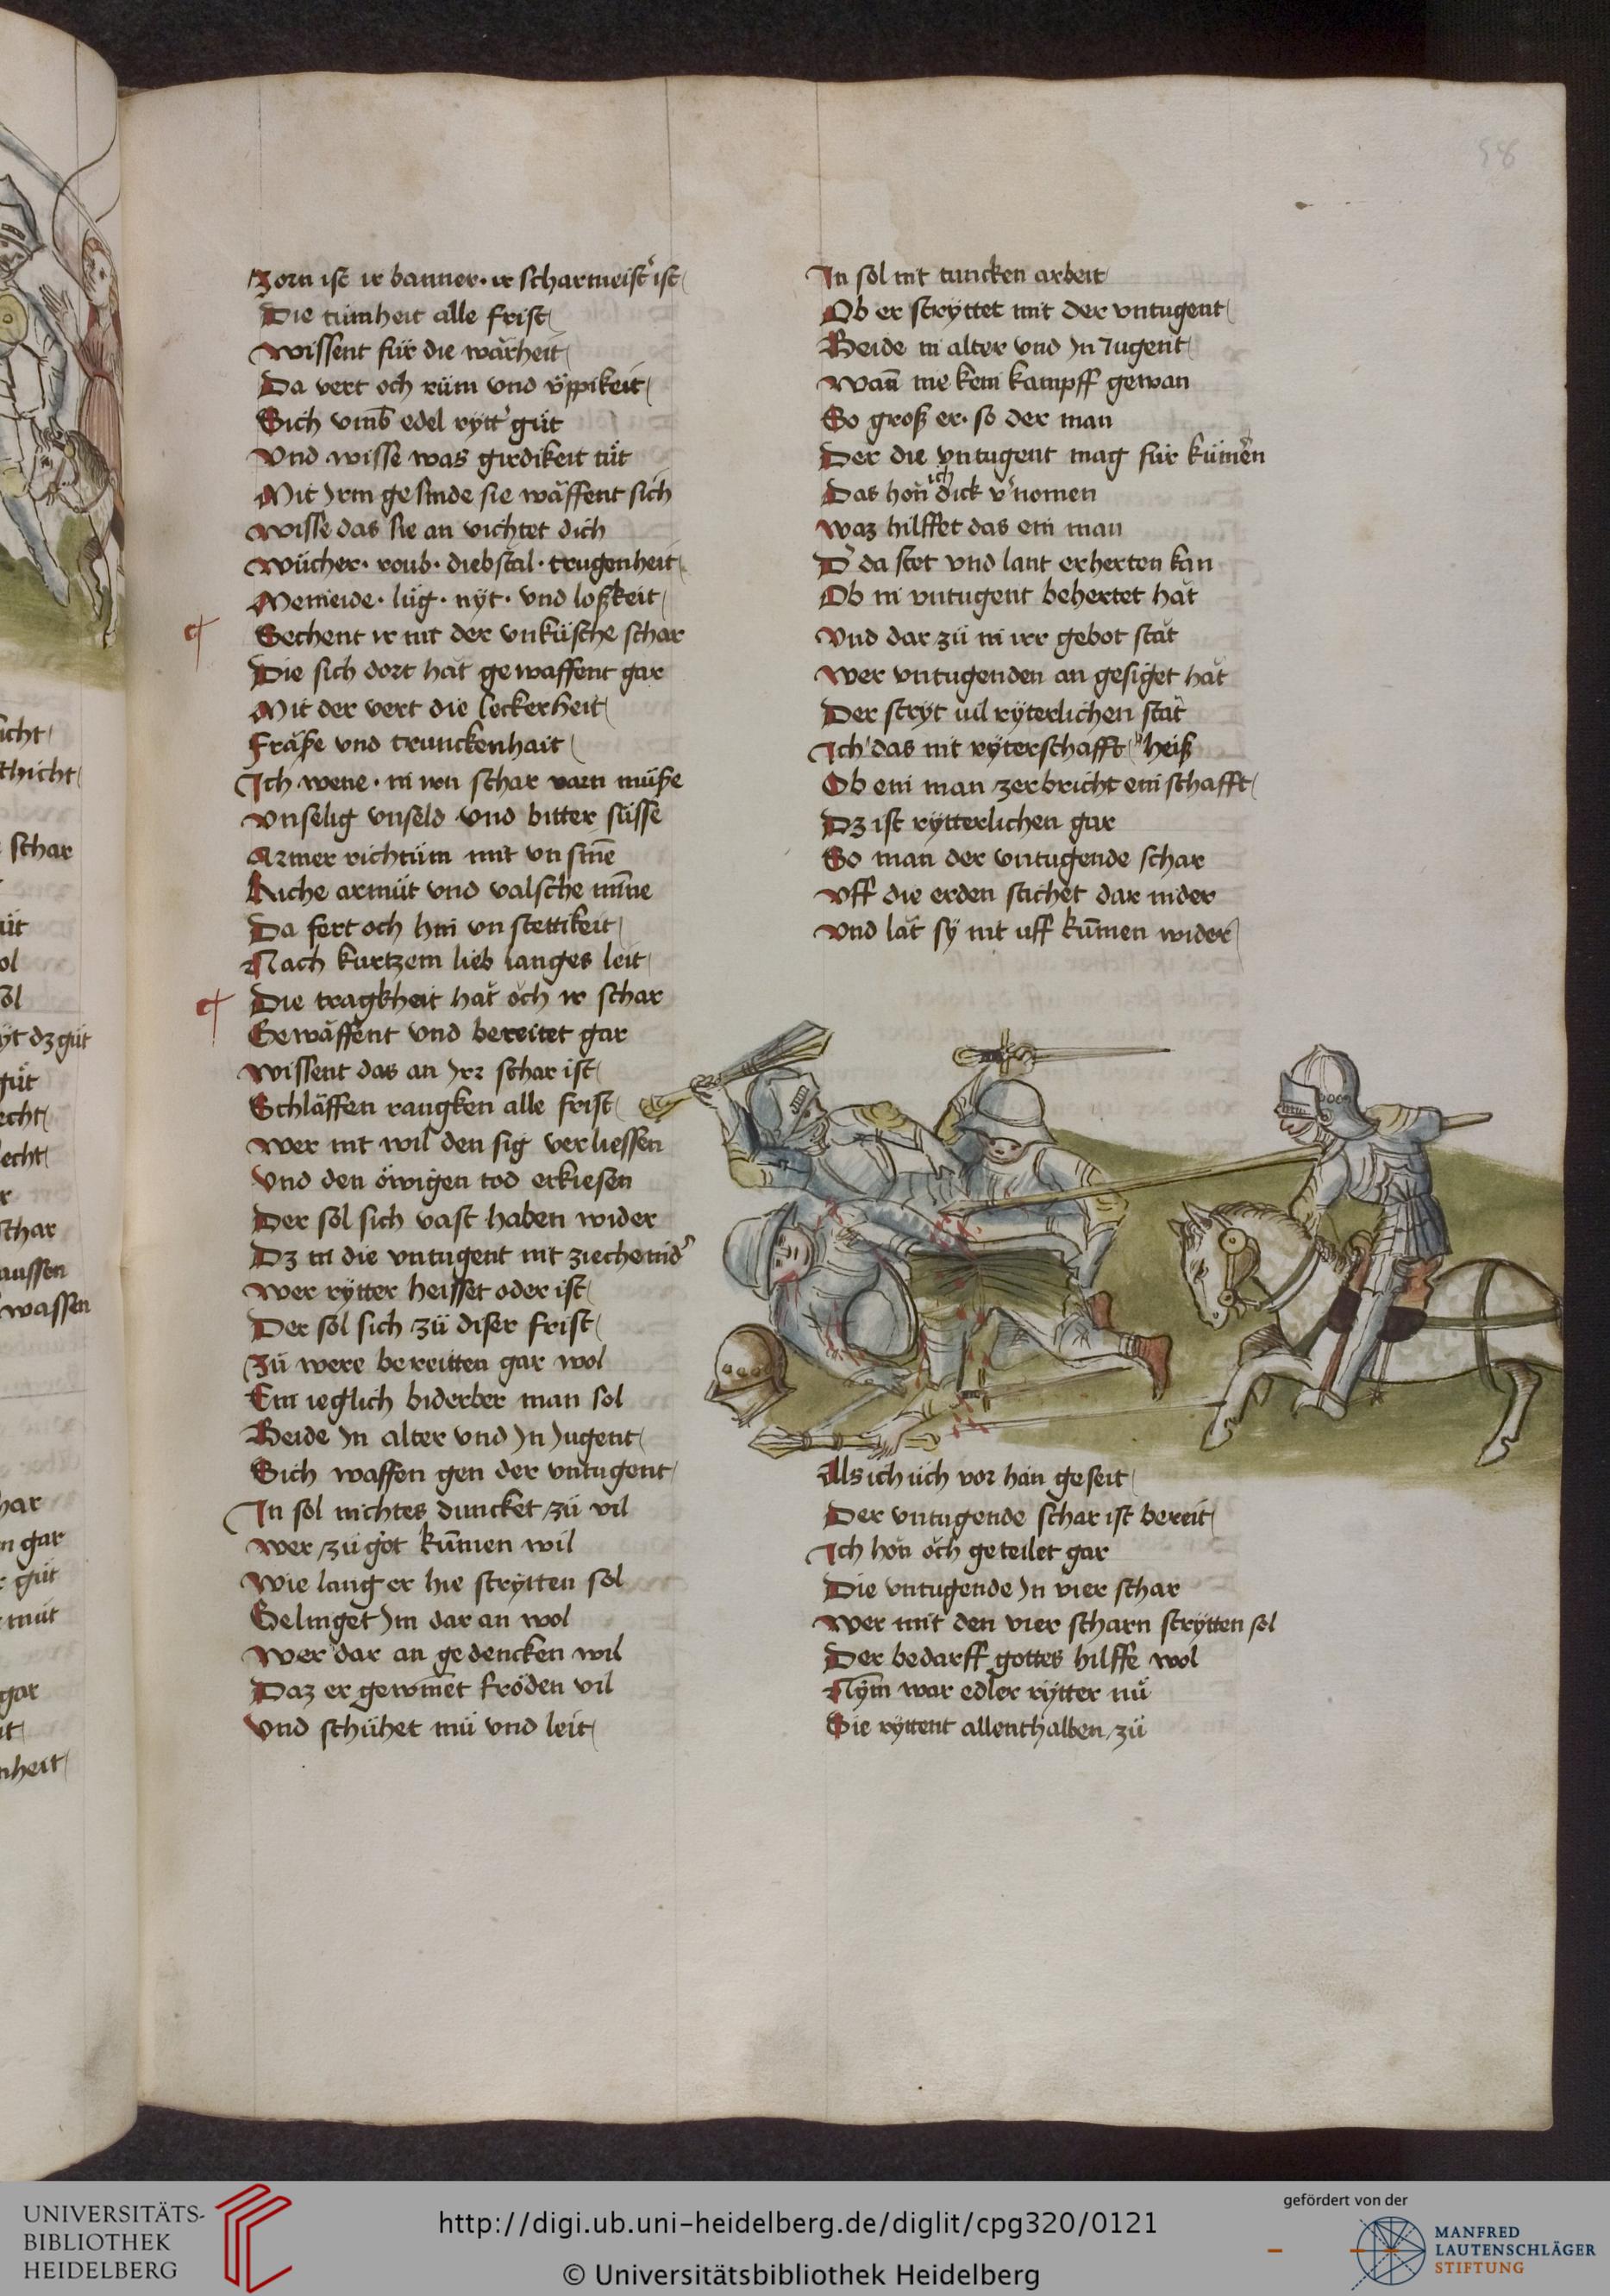 Zorn ist ir banner · ir scharmeistͬ ist
Die tumheit alle frist
Wissent für die wǎrheit
Da vert och rům vnd v̈ppikeit
Sich vmb edel rytt' gůt
Vnd wisse was girdikeit tůt
Mit Jrm gesinde sie wǎffent sich
Wisse das sie an vichtet dich
Wůcher · roub · diebstal · trugenheit
Meineide · lüg · nyt · vnd loßkeit
Sechent ir nit der vnküsche schar
Die sich dort hǎt gewaffent gar
Mit der vert die leckerheit
Frǎße vnd trunckenhait
Ich wene · in von schar varn müße
Vnselig vnseld vnd bitter süsse
Armer richtům mit vn sin̄e
Riche armůt vnd valsche min̄e
Da fert och hin vn stettikeit
Nach kurtzem lieb langes leit
Die tragkheit hǎt ǒch ir schar
Gewǎffent vnd bereitet gar
Wissent das an Jrr schar ist
Schlǎffen rangken alle frist
Wer nit wil den sig verliessen
Vnd den öwigen tod erkiesen
Der sol sich vast haben wider
Dz in die vntugent nit zieche nid'
Wer rytter heisset oder ist
Der sol sich zů diser frist
Zů were bereitten gar wol
Ein ieglich biderber man sol
Beide Jn alter vnd Jn Jugent
Sich waffen gen der vntugent
In sol nichtes duncket zů vil
Wer zů got kum̄en wil
Wie lang er hie strytten sol
Gelinget Jm dar an wol
Wer dar an gedencken wil
Daz er gewin̄et fröden vil
Vnd schühet mü vnd leit
In sol nit tuncken arbeit
Ob er stryttet mit der vntugent
Beide in alter vnd Jn Jugent
Wan̄ nie kein kampff gewan
So groß er · so der man
Der die vntugent mag für küm̄en
Das hon ich dick v'nomen
Waz hilffet das ein man
D' da stet vnd lant erherten kan
Ob in vntugent behertet hǎt
Vnd dar zů in irr gebot stǎt
Wer vntugenden an gesiget hǎt
Der stryt uil ryterlichen stǎt
Ich das nit ryterschafft heiß
Ob ein man zerbricht ein schafft
Dz ist rytterlichen gar
So man der vntugende schar
Vff die erden stichet dar nider
Vnd lǎt sy nit uff kum̄en wider
Als ich üch vor hǎn geseit
Der vntugende schar ist bereit
Ich hǒn ǒch geteilet gar
Die vntugende Jn vier schar
Wer mit den vier scharn strytten sol
Der bedarff gottes hilffe wol
Nym̄ war edler rytter nů
Sie ryttent allenthalben zů
58
UNIVERSITÄTS-
BIBLIOTHEK
HEIDELBERG
http://digi.ub.uni-heidelberg.de/diglit/cpg320/0121
© Universitätsbibliothek Heidelberg
gefördert von der
MANFRED
LAUTENSCHLÄGER
STIFTUNG